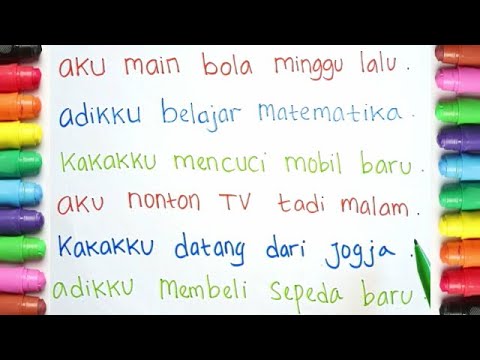 aku main bola minggu lalu.
adikku belajar matematika.
Kakakku mencuci mobil baru.
aku nonton TV tadi malam.
Kakakku datang dari jogja.
adikku membeli sepeda baru.